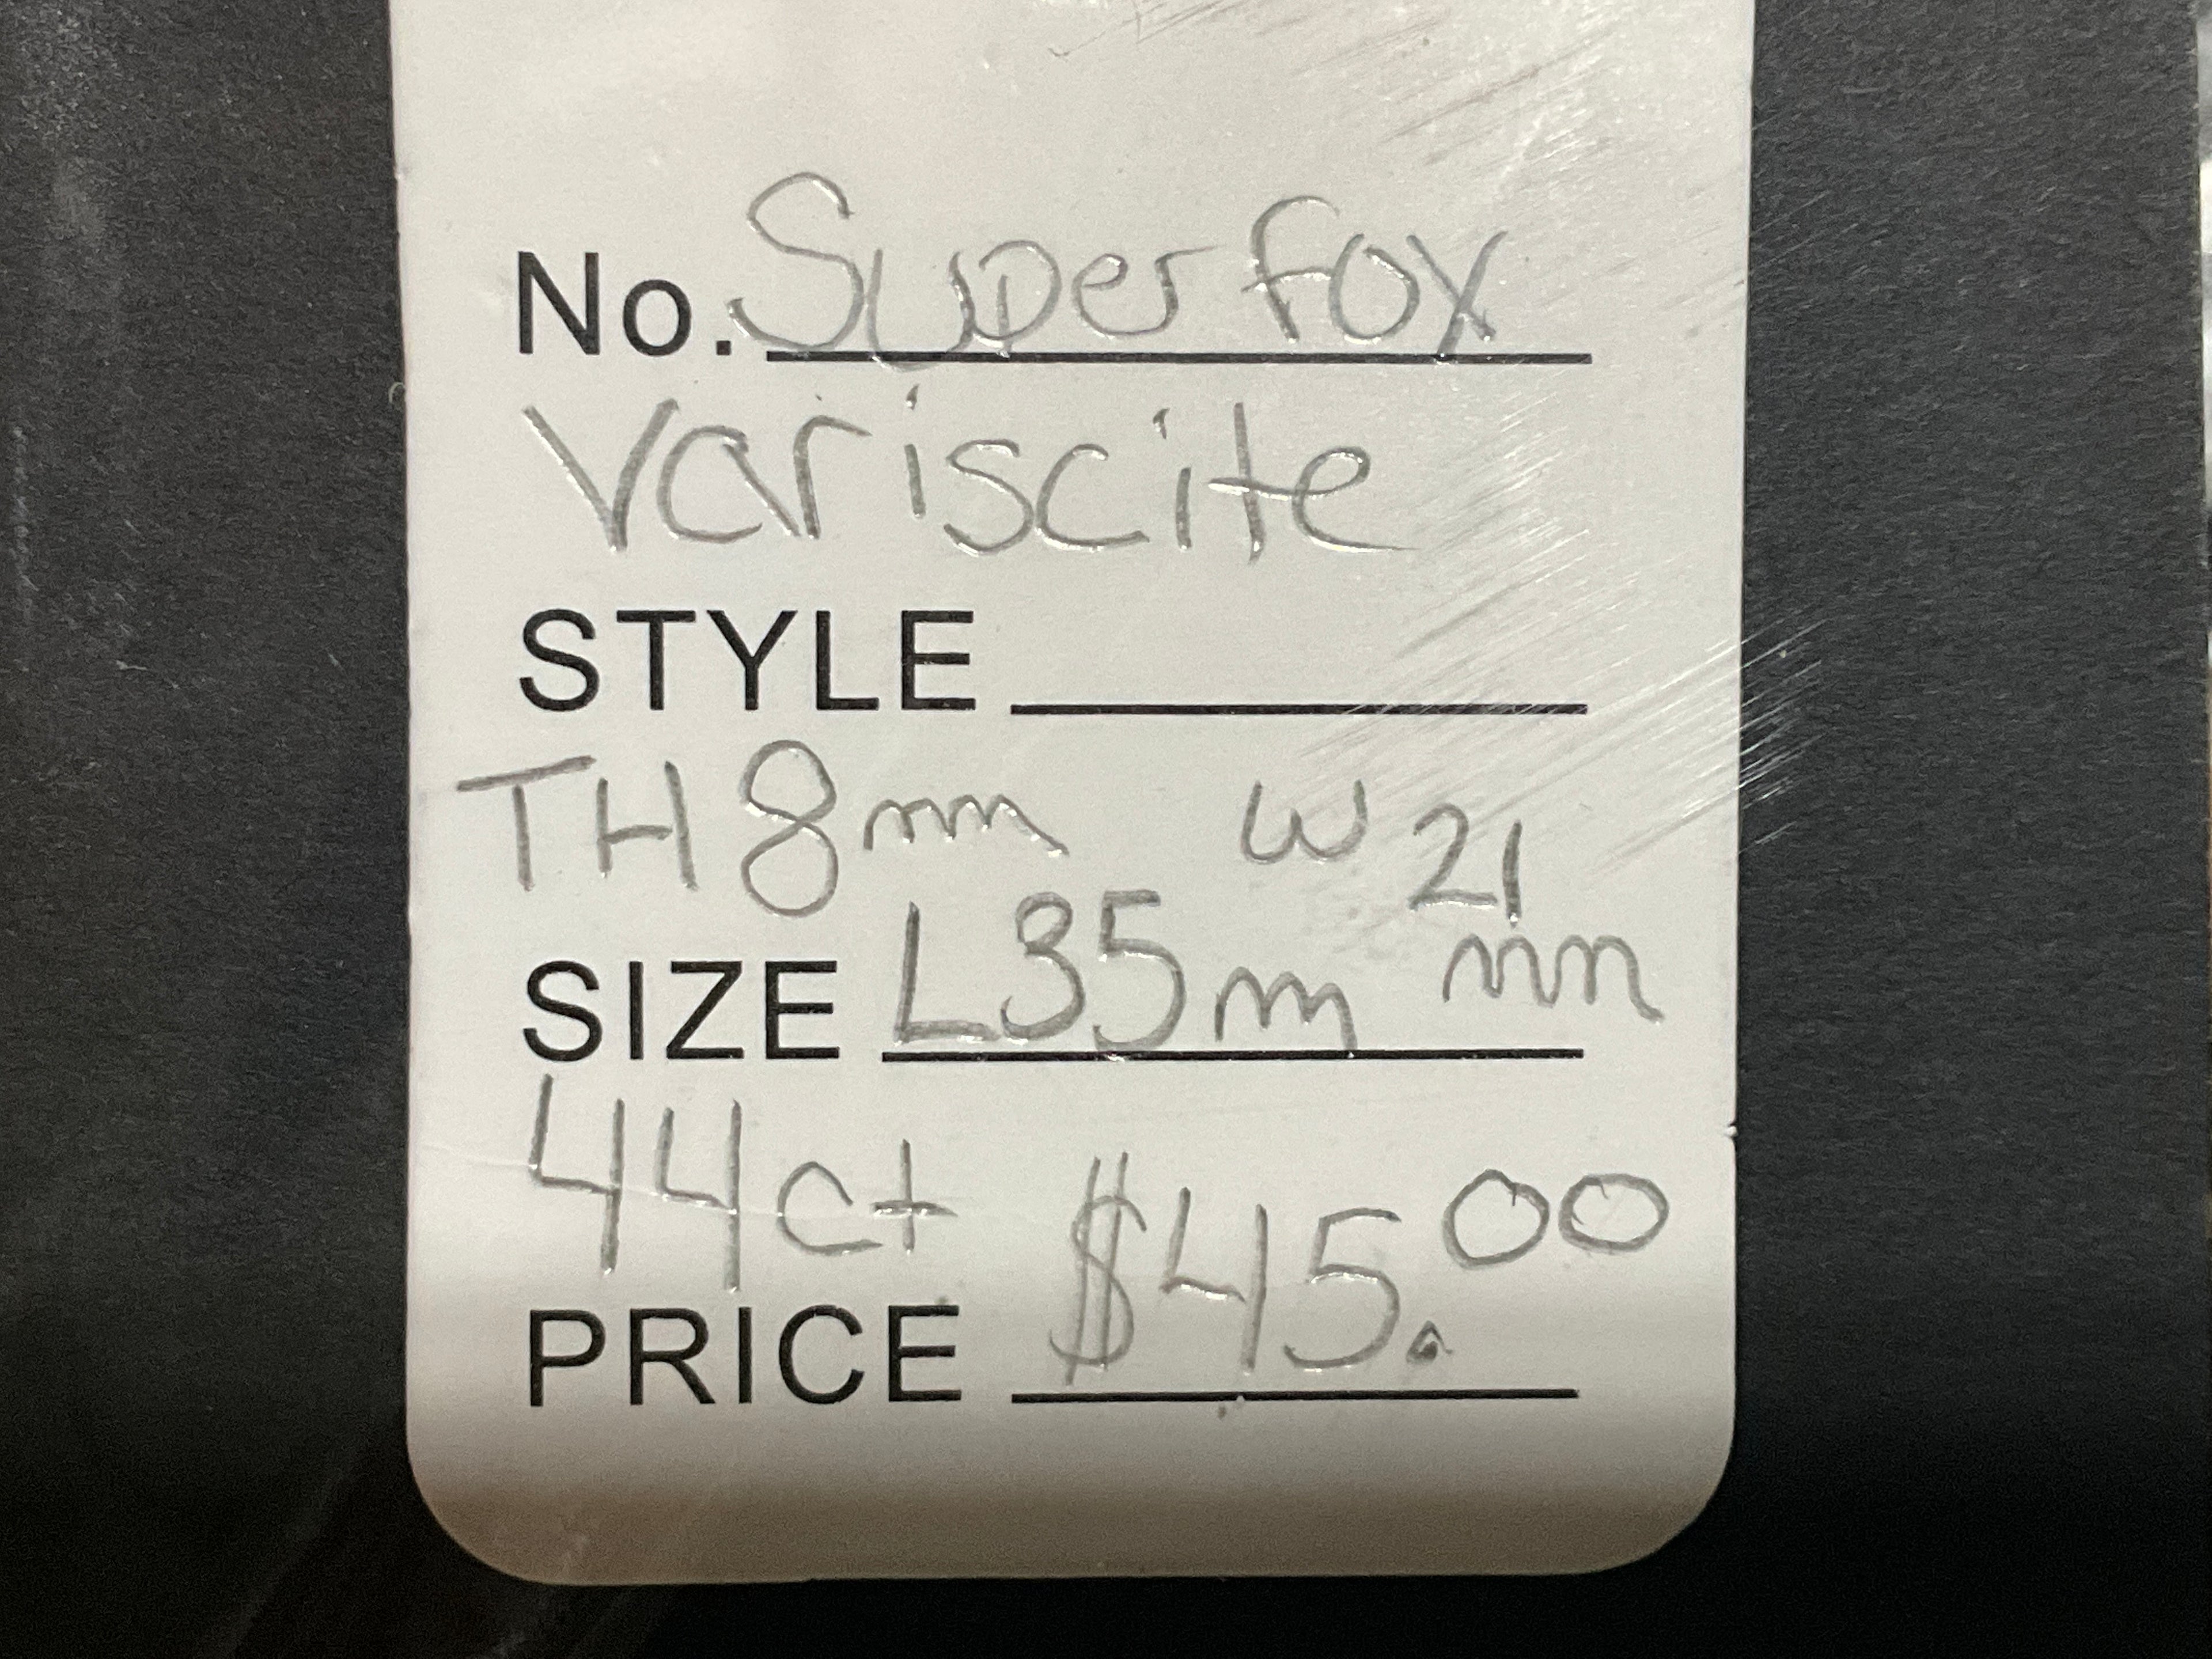 No. Super fox
Variscite
STYLE
TH 8mm W 21 mm
SIZE L35m
44ct $45.00
PRICE